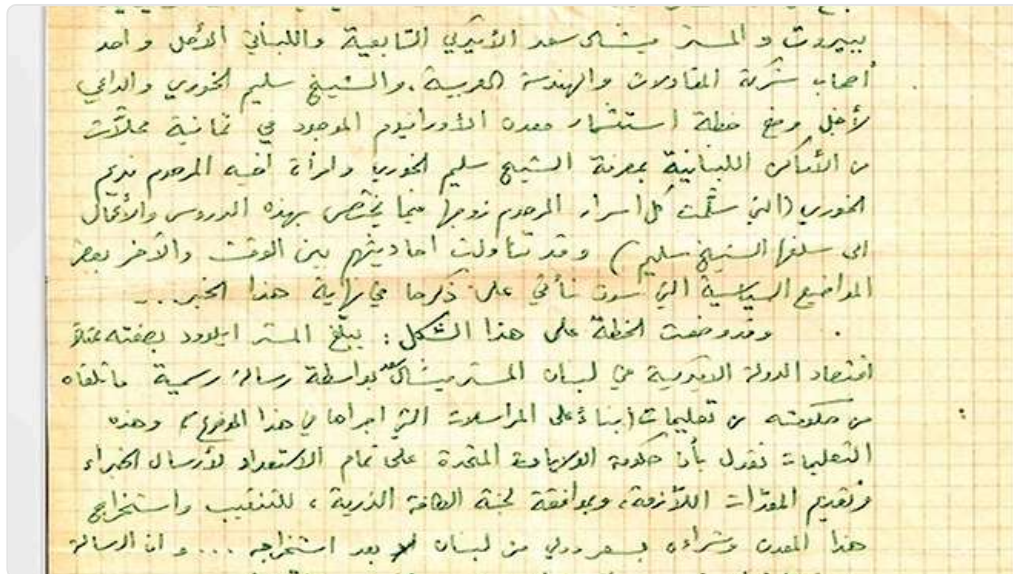 ببيروت والمستر ميشال سعد الأميركي التابعية واللبناني الأصل واحد
أصحاب شركة المقاولات والهندسة العربية، والشيخ سليم الخوري والداعي
لأجل وضع خطة استثمار معدن الأورانيوم الموجود في ثمانية محلّات
من الأماكن اللبنانية بمعرفة الشيخ سليم الخوري وامرأة اخيه المرحوم نديم
الخوري (التي سلّمت كل اسرار المرحوم زوجها فيما يختص بهذه الدروس والأعمال
الى سلفها الشيخ سليم) وقد تناولت احاديثهم بين الوقت والآخر بعض
المواضيع السياسية التي سوف نأتي على ذكرها في نهاية هذا الخبر...
وقد وضعت الخطة على هذا الشكل: يبلّغ المستر ايلوود بصفته
اقتصاد الدولة الاميركية في لبنان المستر ميشال سعد بواسطة رسالة رسمية ما تلقاه
من حكومته من تعليمات (بناءً على المراسلات التي اجراها في هذا الموضوع)، وهذه
التعليمات تقول بأن حكومة الولايات المتحدة على تمام الاستعداد لأرسال الخبراء
وتقديم المعدّات اللازمة، وبموافقة لجنة الطاقة الذرية، للتنقيب واستخراج
هذا المعدن وشراءه بسعر دولي من لبنان بعد استخراجه ... و ان الرسالة